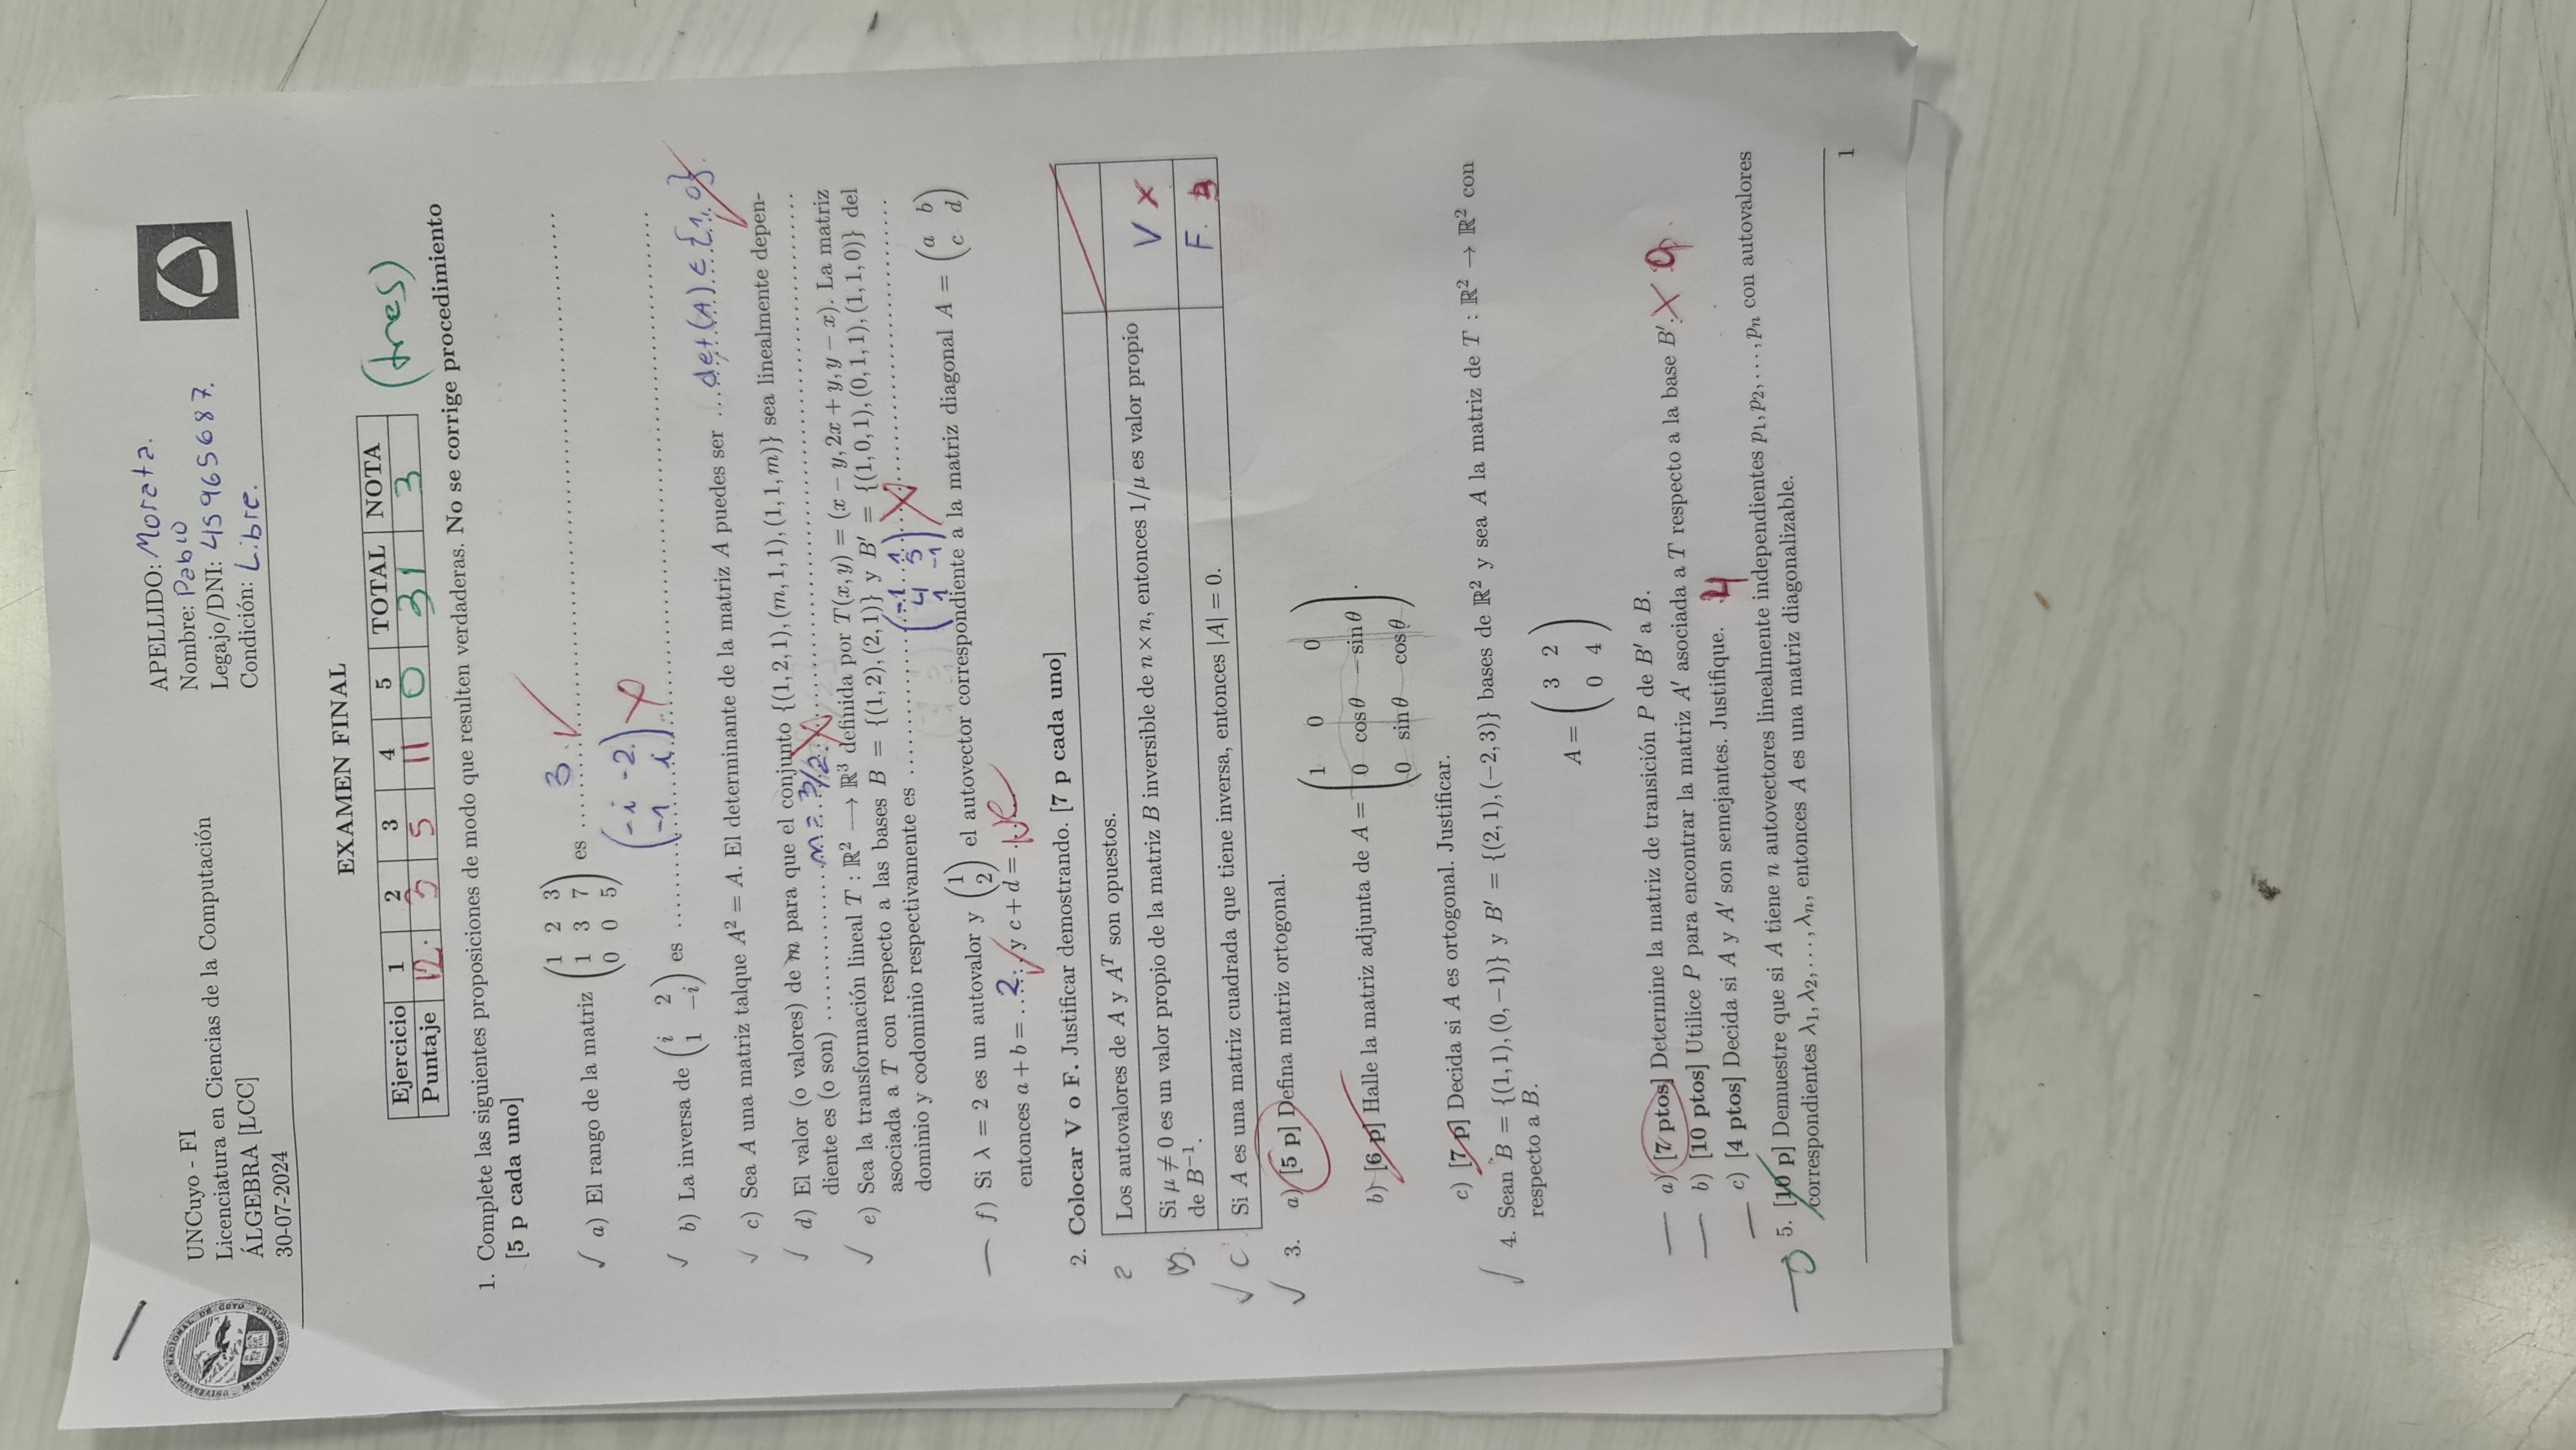 UNCuyo - FI
Licenciatura en Ciencias de la Computación
ÁLGEBRA [LCC]
30-07-2024
APELLIDO: Morata.
Nombre: Pablo
Legajo/DNI: 45965687.
Condición: Libre.
EXAMEN FINAL
Ejercicio 1 2 3 4 5 TOTAL NOTA
Puntaje 12. 3 5 11 0 31 3 (tres)
1. Complete las siguientes proposiciones de modo que resulten verdaderas. No se corrige procedimiento
[5 p cada uno]
a) El rango de la matriz (1 2 3; 1 3 7; 0 0 5) es 3.
b) La inversa de (i 2; 1 -i) es (-i -2; -1 i)
c) Sea A una matriz talque A² = A. El determinante de la matriz A puedes ser det(A) ∈ {1, 0}.
d) El valor (o valores) de m para que el conjunto {(1, 2, 1), (m, 1, 1), (1, 1, m)} sea linealmente depen-
diente es (o son) m = 3/2.
e) Sea la transformación lineal T : ℝ² ⟶ ℝ³ definida por T(x, y) = (x − y, 2x + y, y − x). La matriz
asociada a T con respecto a las bases B = {(1, 2), (2, 1)} y B′ = {(1, 0, 1), (0, 1, 1), (1, 1, 0)} del
dominio y codominio respectivamente es (-1 1; 4 5; 1 -1)
f) Si λ = 2 es un autovalor y (1; 2) el autovector correspondiente a la matriz diagonal A = (a b; c d)
entonces a + b = 2. y c + d =
2. Colocar V o F. Justificar demostrando. [7 p cada uno]
Los autovalores de A y Aᵀ son opuestos.
Si μ ≠ 0 es un valor propio de la matriz B inversible de n × n, entonces 1/μ es valor propio
de B⁻¹.
V X
c Si A es una matriz cuadrada que tiene inversa, entonces |A| = 0.
F. 3
3. a) [5 p] Defina matriz ortogonal.
b) [6 p] Halle la matriz adjunta de A = (1 0 0; 0 cos θ − sin θ; 0 sin θ cos θ).
c) [7 p] Decida si A es ortogonal. Justificar.
4. Sean B = {(1, 1), (0, −1)} y B′ = {(2, 1), (−2, 3)} bases de ℝ² y sea A la matriz de T : ℝ² → ℝ² con
respecto a B.
A = (3 2; 0 4)
a) [7 ptos] Determine la matriz de transición P de B′ a B.
b) [10 ptos] Utilice P para encontrar la matriz A′ asociada a T respecto a la base B′. X
c) [4 ptos] Decida si A y A′ son semejantes. Justifique. 4
0 5. [10 p] Demuestre que si A tiene n autovectores linealmente independientes p₁, p₂, . . . , pₙ con autovalores
correspondientes λ₁, λ₂, . . . , λₙ, entonces A es una matriz diagonalizable.
1